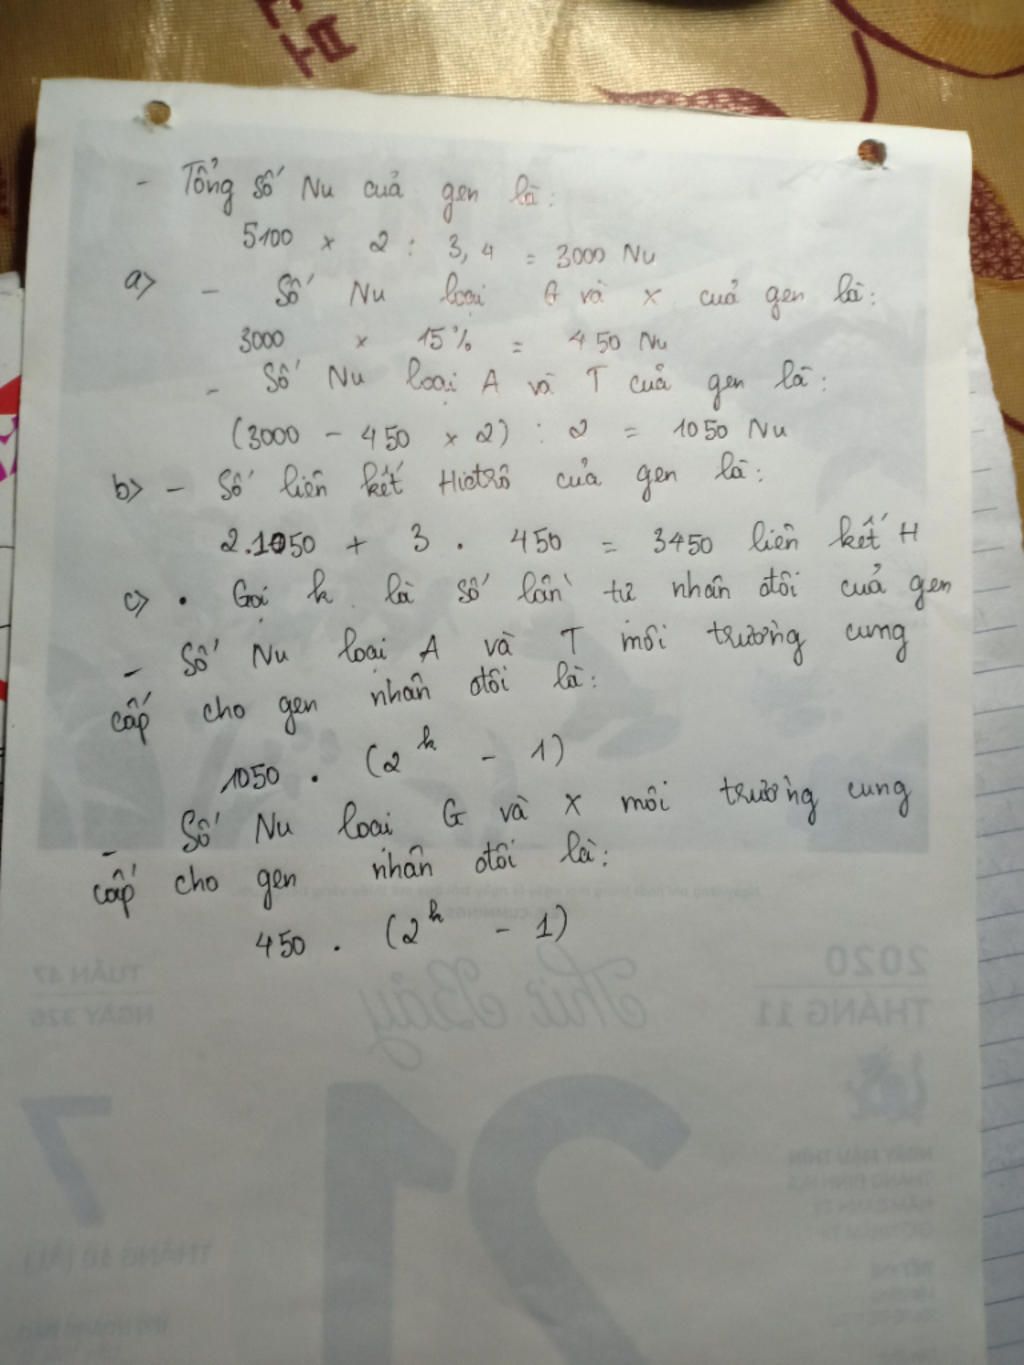 - Tổng số Nu của gen là:
5100 x 2 : 3,4 = 3000 Nu
a> - Số Nu loại G và X của gen là:
3000 x 15% = 450 Nu
- Số Nu loại A và T của gen là:
(3000 - 450 x 2) : 2 = 1050 Nu
b> - Số liên kết Hiđrô của gen là:
2.1050 + 3 . 450 = 3450 liên kết H
c> • Gọi k là số lần tự nhân đôi của gen
- Số Nu loại A và T môi trường cung
cấp cho gen nhân đôi là:
1050 . (2^k - 1)
- Số Nu loại G và X môi trường cung
cấp cho gen nhân đôi là:
450 . (2^k - 1)
2020
THÁNG 11
TUẦN 47
NGÀY 326
Thứ Bảy
21
7
THÁNG 10 (ÂL)